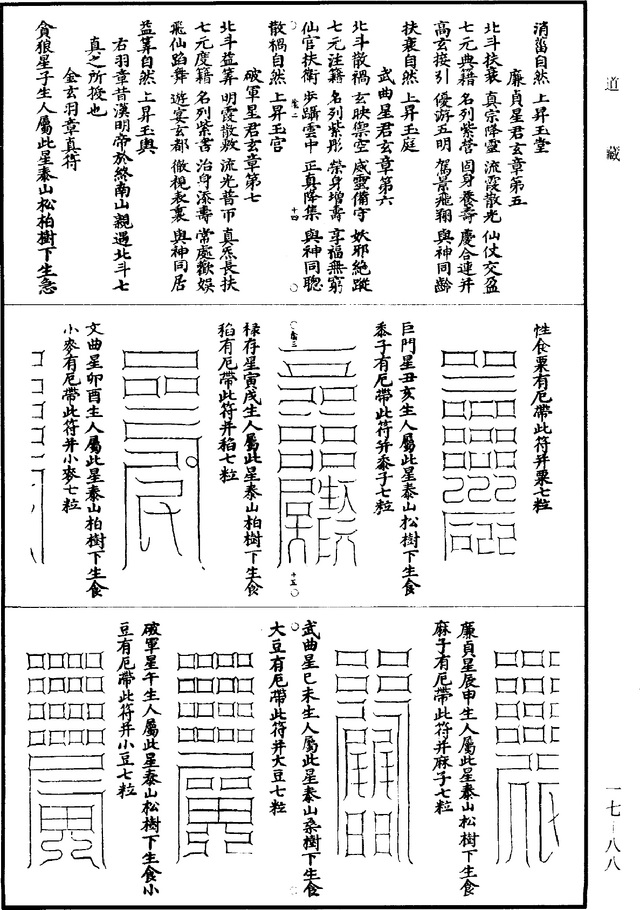 道藏
消菑自然 上昇玉堂
廉貞星君玄章第五
北斗扶衰 真宗降靈 流霞散光 仙仗交盈
七元典籍 名列紫營 固身養壽 慶合連并
高玄接引 優游五明 駕景飛翔 與神同齡
扶衰自然 上昇玉庭
武曲星君玄章第六
北斗散禍 玄映禦空 威靈備守 妖邪絕蹤
七元注籍 名列紫彤 榮身增壽 享福無窮
仙官扶衛 步躡雲中 正真降集 與神同聰
散禍自然 上昇玉宫
破軍星君玄章第七
北斗益筭 明霞散敷 流光普帀 真炁長扶
七元度籍 名列紫書 治身添壽 常處歡娱
飛仙蹈舞 遊宴玄都 徹視表裏 與神同居
益筭自然 上昇玉輿
右羽章昔漢明帝於終南山親遇北斗七
真之所授也
金玄羽章真符
貪狼星子生人屬此星泰山松柏樹下生急
性食粟有厄帶此符并粟七粒
巨門星丑亥生人屬此星泰山松樹下生食
黍子有厄帶此符并黍子七粒
禄存星寅戌生人屬此星泰山柏樹下生食
稻有厄帶此符并稻七粒
文曲星卯酉生人屬此星泰山柏樹下生食
小麥有厄帶此符并小麥七粒
廉貞星辰申生人屬此星泰山松樹下生食
麻子有厄帶此符并麻子七粒
武曲星巳未生人屬此星泰山桑樹下生食
大豆有厄帶此符并大豆七粒
破軍星午生人屬此星泰山松樹下生食小
豆有厄帶此符并小豆七粒
一七-八八